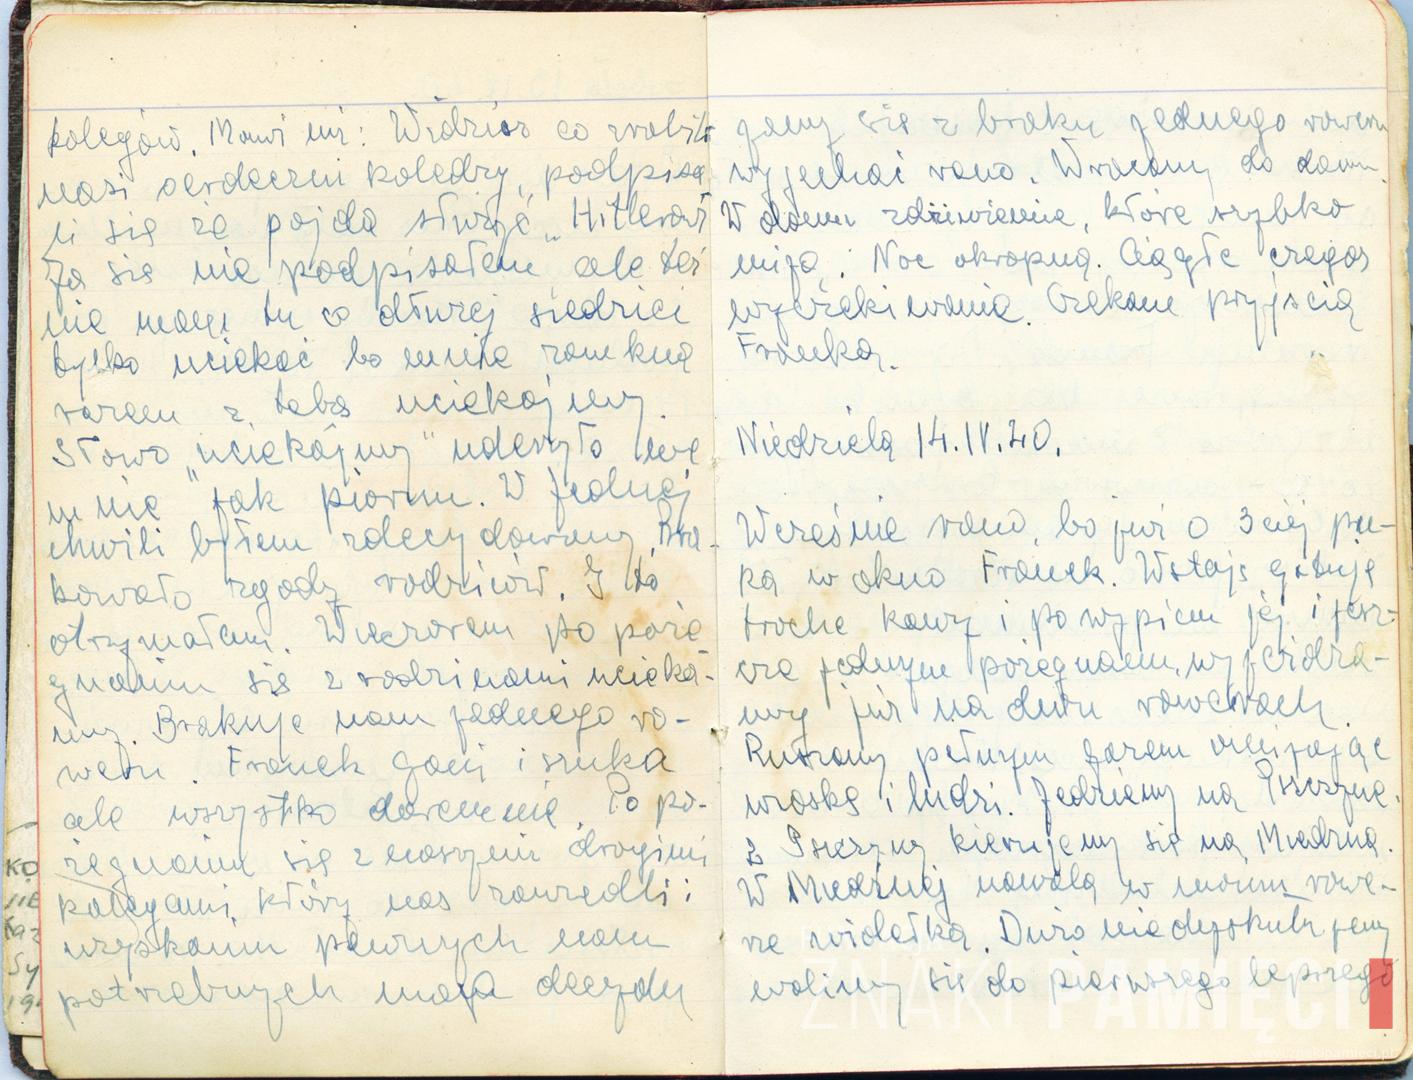 kolegów. Mówi mi: Widzisz co zrobili
nasi serdeczni koledzy, podpisa
li się że pójdą służyć „Hitlerowi
Ja się nie podpisałem ale też
nie mogę tu co dłużej siedzieć
tylko uciekać bo mnie zamkną
razem z tobą uciekajmy.
Słowo „uciekajmy" uderzyło we
mnie jak piorun. W jednej
chwili byłem zdecydowany. Bra-
kowało zgody rodziców. I tą
otrzymałem. Wieczorem po poże
gnaniu się z rodzinami ucieka-
my. Brakuje nam jednego ro-
weru. Franek goni i szuka
ale wszystko daremnie. Po po-
żegnaniu się z naszymi drogimi
kolegami, którzy nas zawiedli i
uzyskaniu pewnych nam
potrzebnych map decydu
jemy się z braku jednego roweru
wyjechać rano. Wracamy do domu.
W domu zdziwienie, które szybko
mija. Noc okropna. Ciągłe czegoś
wyczekiwanie. Czekam przyjścia
Franka.
Niedziela 14.IV.40.
Wcześnie rano, bo już o 3ciej pu-
ka w okno Franek. Wstaję gotuję
trochę kawy i po wypiciu jej i jesz-
cze jednym pożegnaniu, wyjeżdża-
my już na dwu rowerach.
Ruszamy pełnym gazem mijając
wioskę i ludzi. Jedziemy na Pszczynę.
Z Pszczyny kierujemy się na Miedźną.
W Miedźnej nawala w moim rowe-
rze widełka. Dużo nie dyskutujemy
walimy się do pierwszego lepszego
KO
Sy
19
ZNAKI PAMIĘCI